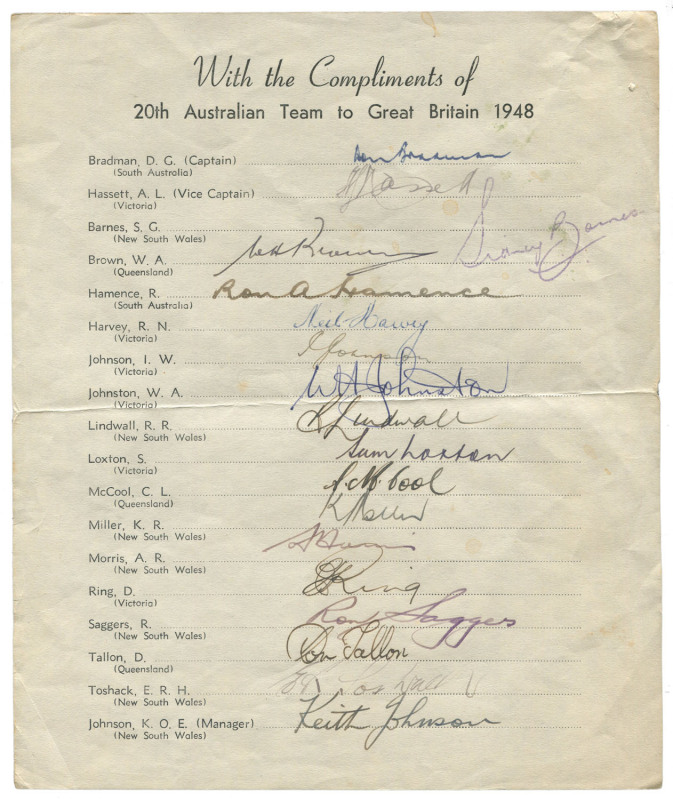 With the Compliments of
20th Australian Team to Great Britain 1948
Bradman, D. G. (Captain) Don Bradman
(South Australia)
Hassett, A. L. (Vice Captain) Hassett
(Victoria)
Barnes, S. G. Sidney Barnes
(New South Wales)
Brown, W. A. W A Brown
(Queensland)
Hamence, R. Ron A Hamence
(South Australia)
Harvey, R. N. Neil Harvey
(Victoria)
Johnson, I. W. I Johnson
(Victoria)
Johnston, W. A. W A Johnston
(Victoria)
Lindwall, R. R. R Lindwall
(New South Wales)
Loxton, S. Sam Loxton
(Victoria)
McCool, C. L. C. McCool
(Queensland)
Miller, K. R. K Miller
(New South Wales)
Morris, A. R. A Morris
(New South Wales)
Ring, D. D Ring
(Victoria)
Saggers, R. Ron Saggers
(New South Wales)
Tallon, D. Don Tallon
(Queensland)
Toshack, E. R. H. Toshack
(New South Wales)
Johnson, K. O. E. (Manager) Keith Johnson
(New South Wales)